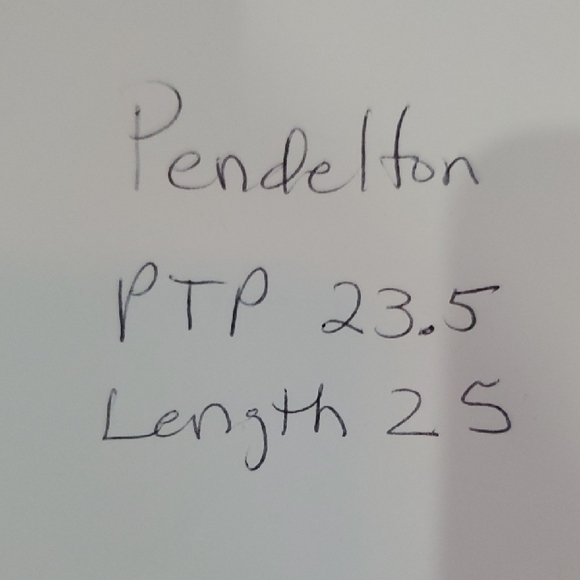 Pendelton
PTP 23.5
Length 25